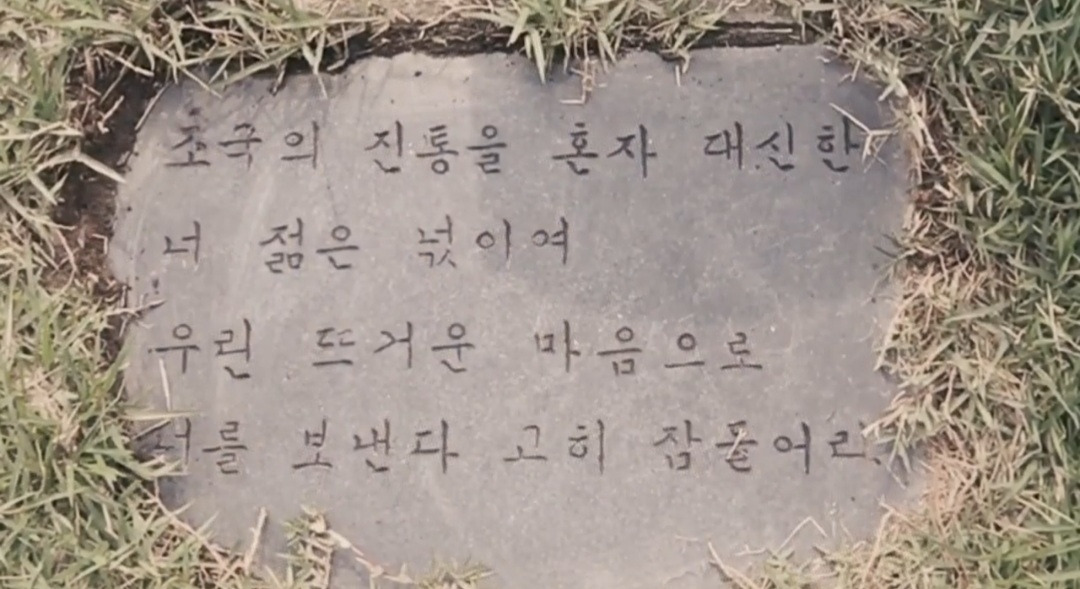 조국의 진통을 혼자 대신한
너 젊은 넋이여
우린 뜨거운 마음으로
너를 보낸다 고히 잠들어라.